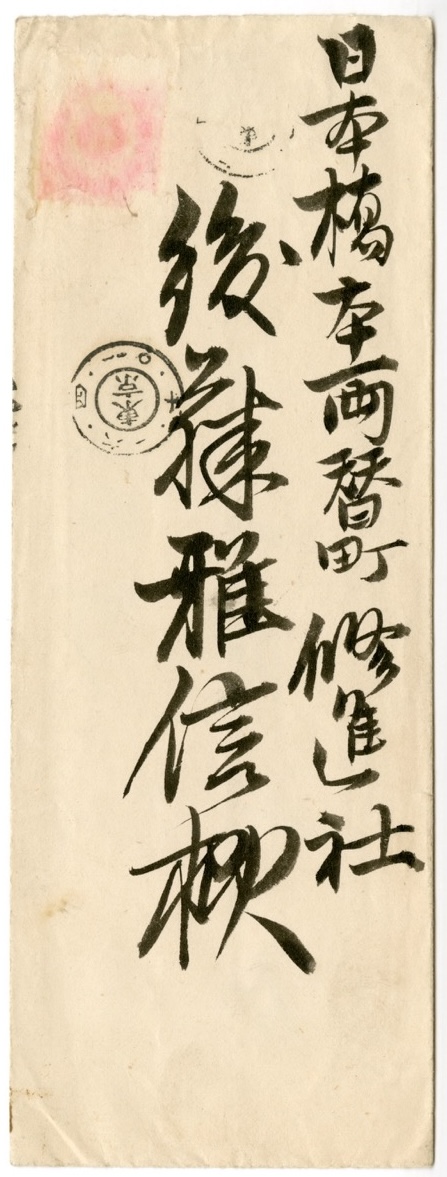 日本橋本両替町 修進社
後藤雅信様
東京